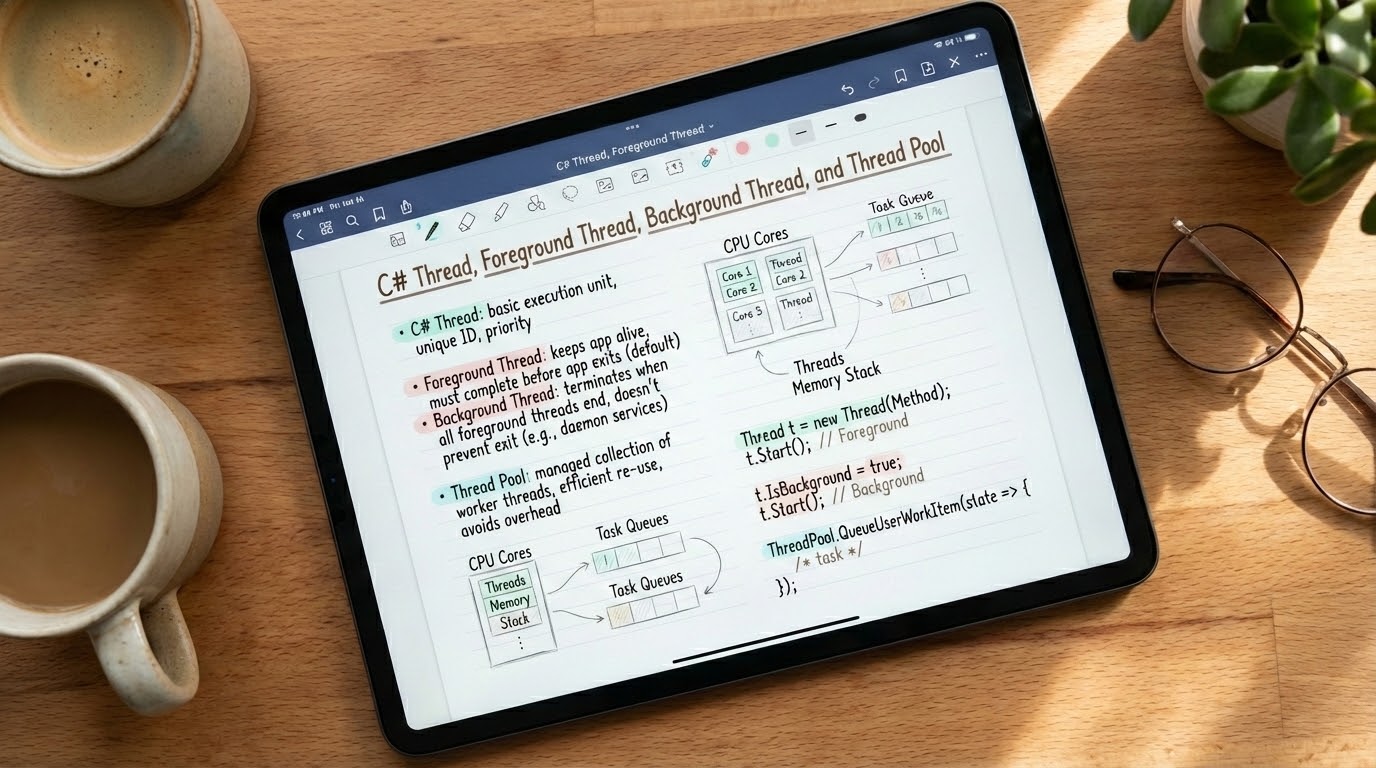 C# Thread, Foreground Thread
C# Thread, Foreground Thread, Background Thread, and Thread Pool
• C# Thread: basic execution unit,
unique ID, priority
• Foreground Thread: keeps app alive,
must complete before app exits (default)
• Background Thread: terminates when
all foreground threads end, doesn't
prevent exit (e.g., daemon services)
• Thread Pool: managed collection of
worker threads, efficient re-use,
avoids overhead
CPU Cores
Threads
Memory
Stack
Task Queues
1
Task Queues
CPU Cores
Core 1
Core 2
Core 3
Thread
Core 2
Thread
Task Queue
1 2
Threads
Memory Stack
Thread t = new Thread(Method);
t.Start(); // Foreground
t.IsBackground = true;
t.Start(); // Background
ThreadPool.QueueUserWorkItem(state => {
/* task */
});